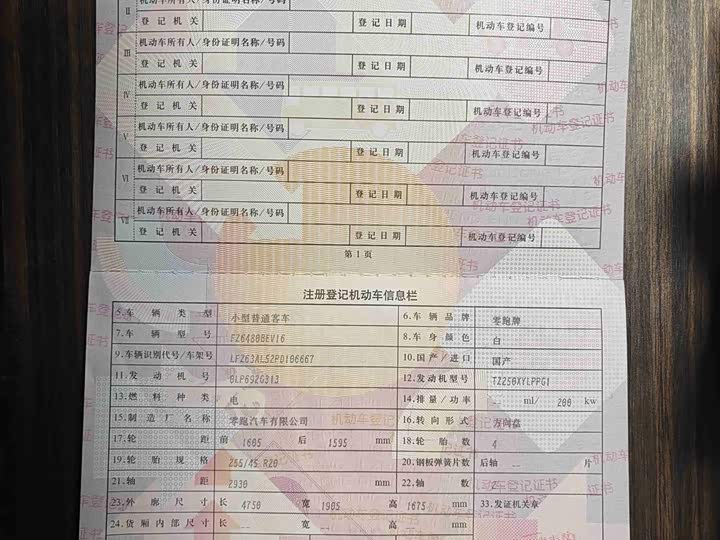 机动车所有人/身份证明名称/号码
II 登记机关 登记日期 机动车登记编号
机动车所有人/身份证明名称/号码
III 登记机关 登记日期 机动车登记编号
机动车所有人/身份证明名称/号码
IV 登记机关 登记日期 机动车登记编号
机动车所有人/身份证明名称/号码
V 登记机关 登记日期 机动车登记编号
机动车所有人/身份证明名称/号码
VI 登记机关 登记日期 机动车登记编号
机动车所有人/身份证明名称/号码
VII 登记机关 登记日期 机动车登记编号
第1页
注册登记机动车信息栏
5.车辆类型 小型普通客车 6.车辆品牌 零跑牌
7.车辆型号 FZ6480BEV16 8.车身颜色 白
9.车辆识别代号/车架号 LFZ63AL52PD106667 10.国产/进口 国产
11.发动机号 GLP692G313 12.发动机型号 TZ250XYLPPG1
13.燃料种类 电 14.排量/功率 -- ml/ 200 kw
15.制造厂名称 零跑汽车有限公司 16.转向形式 方向盘
17.轮距 前 1605 后 1595 mm 18.轮胎数 4
19.轮胎规格 255/45 R20 20.钢板弹簧片数 后轴 -- 片
21.轴距 2930 mm 22.轴数 2
23.外廓尺寸 长 4750 宽 1905 高 1675 mm 33.发证机关章
24.货厢内部尺寸 长 -- 宽 -- 高 -- mm